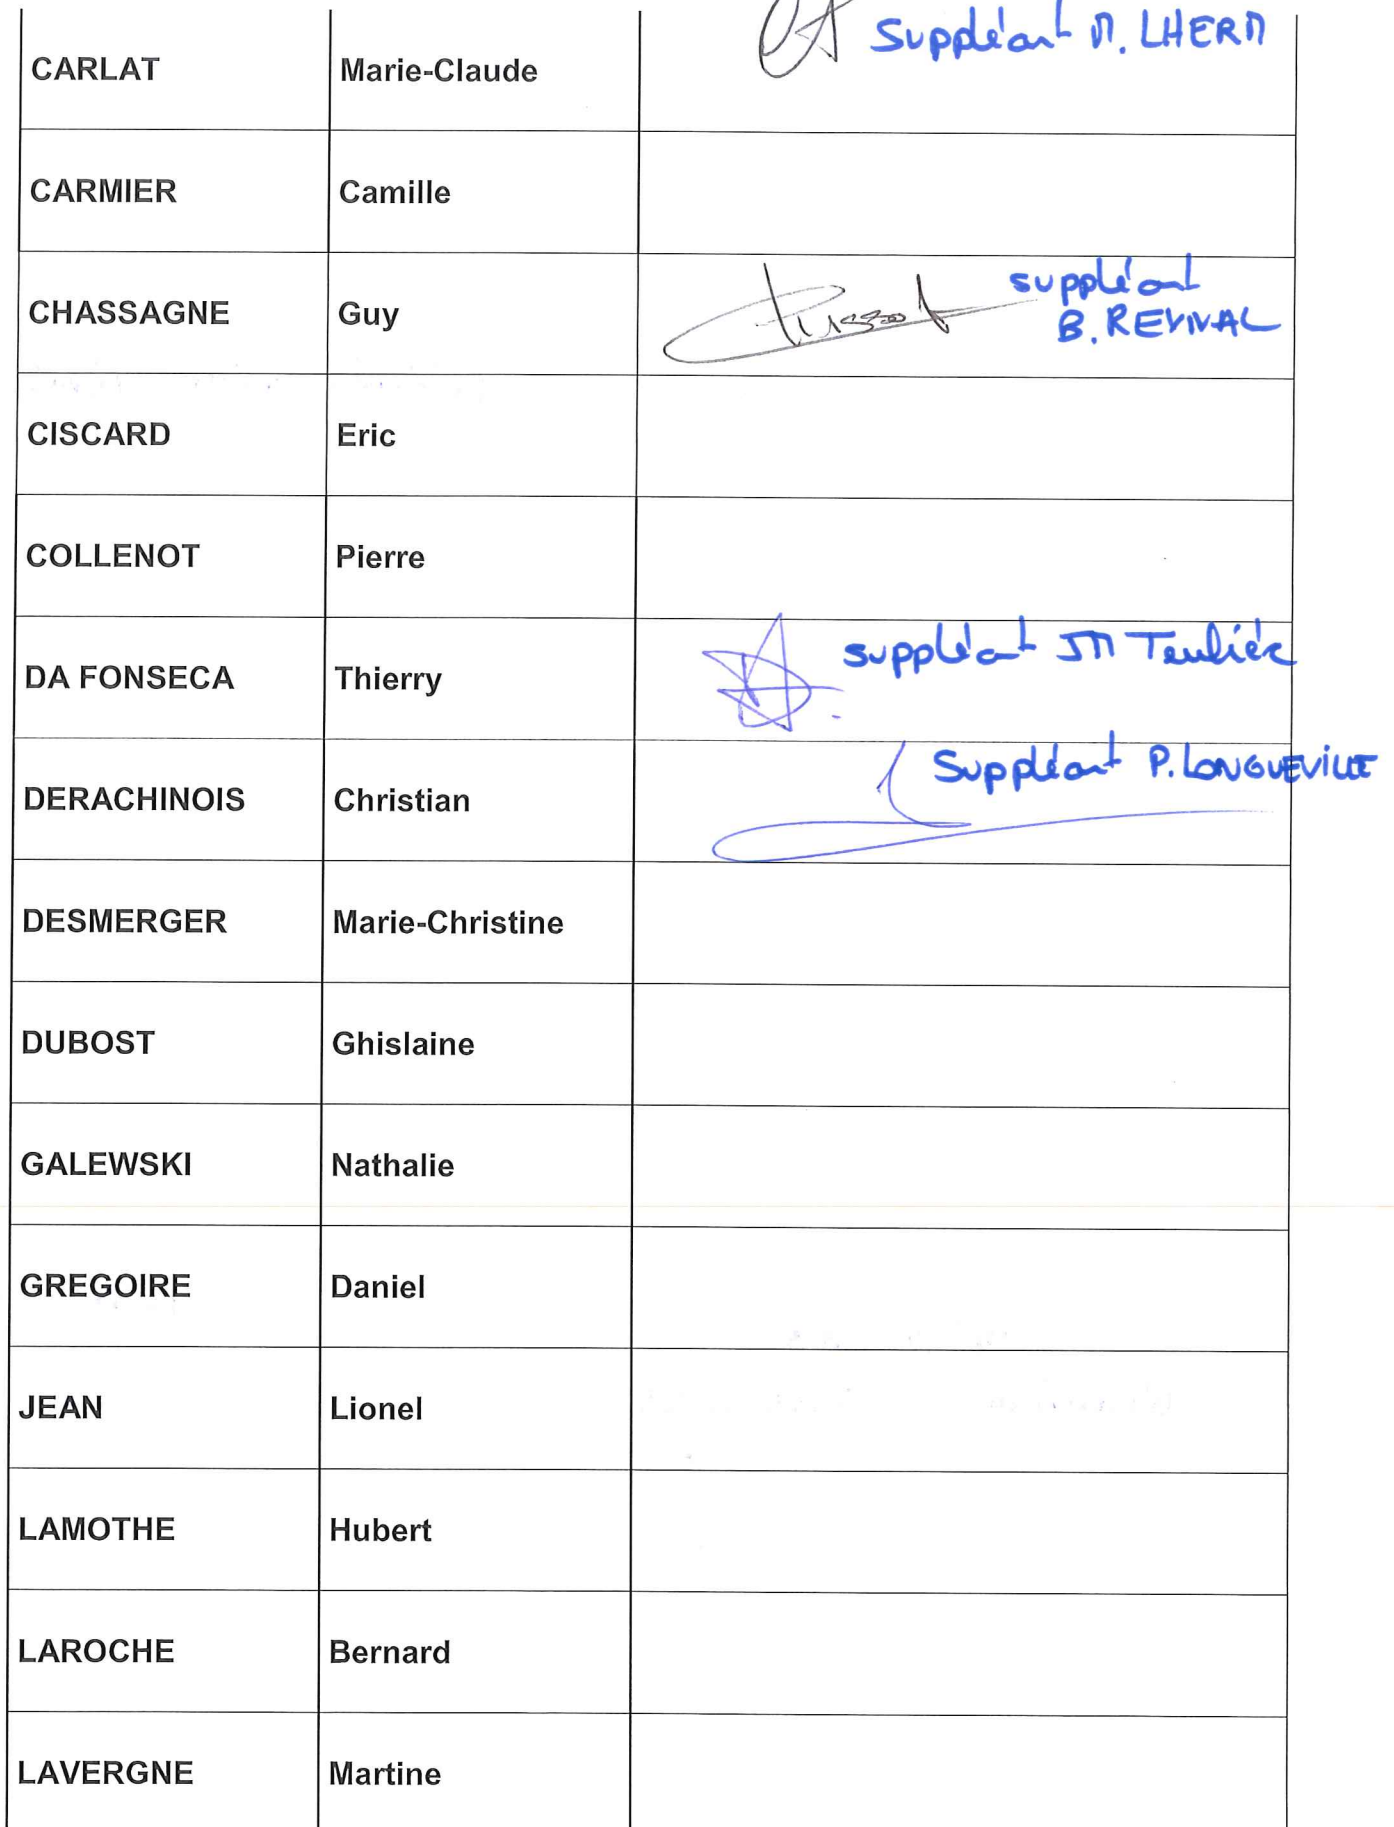 suppléant M. LHERM
CARLAT Marie-Claude
CARMIER Camille
CHASSAGNE Guy suppléant
B. REVIVAL
CISCARD Eric
COLLENOT Pierre
DA FONSECA Thierry suppléant JM Teulière
DERACHINOIS Christian Suppléant P. LONGUEVILLE
DESMERGER Marie-Christine
DUBOST Ghislaine
GALEWSKI Nathalie
GREGOIRE Daniel
JEAN Lionel
LAMOTHE Hubert
LAROCHE Bernard
LAVERGNE Martine